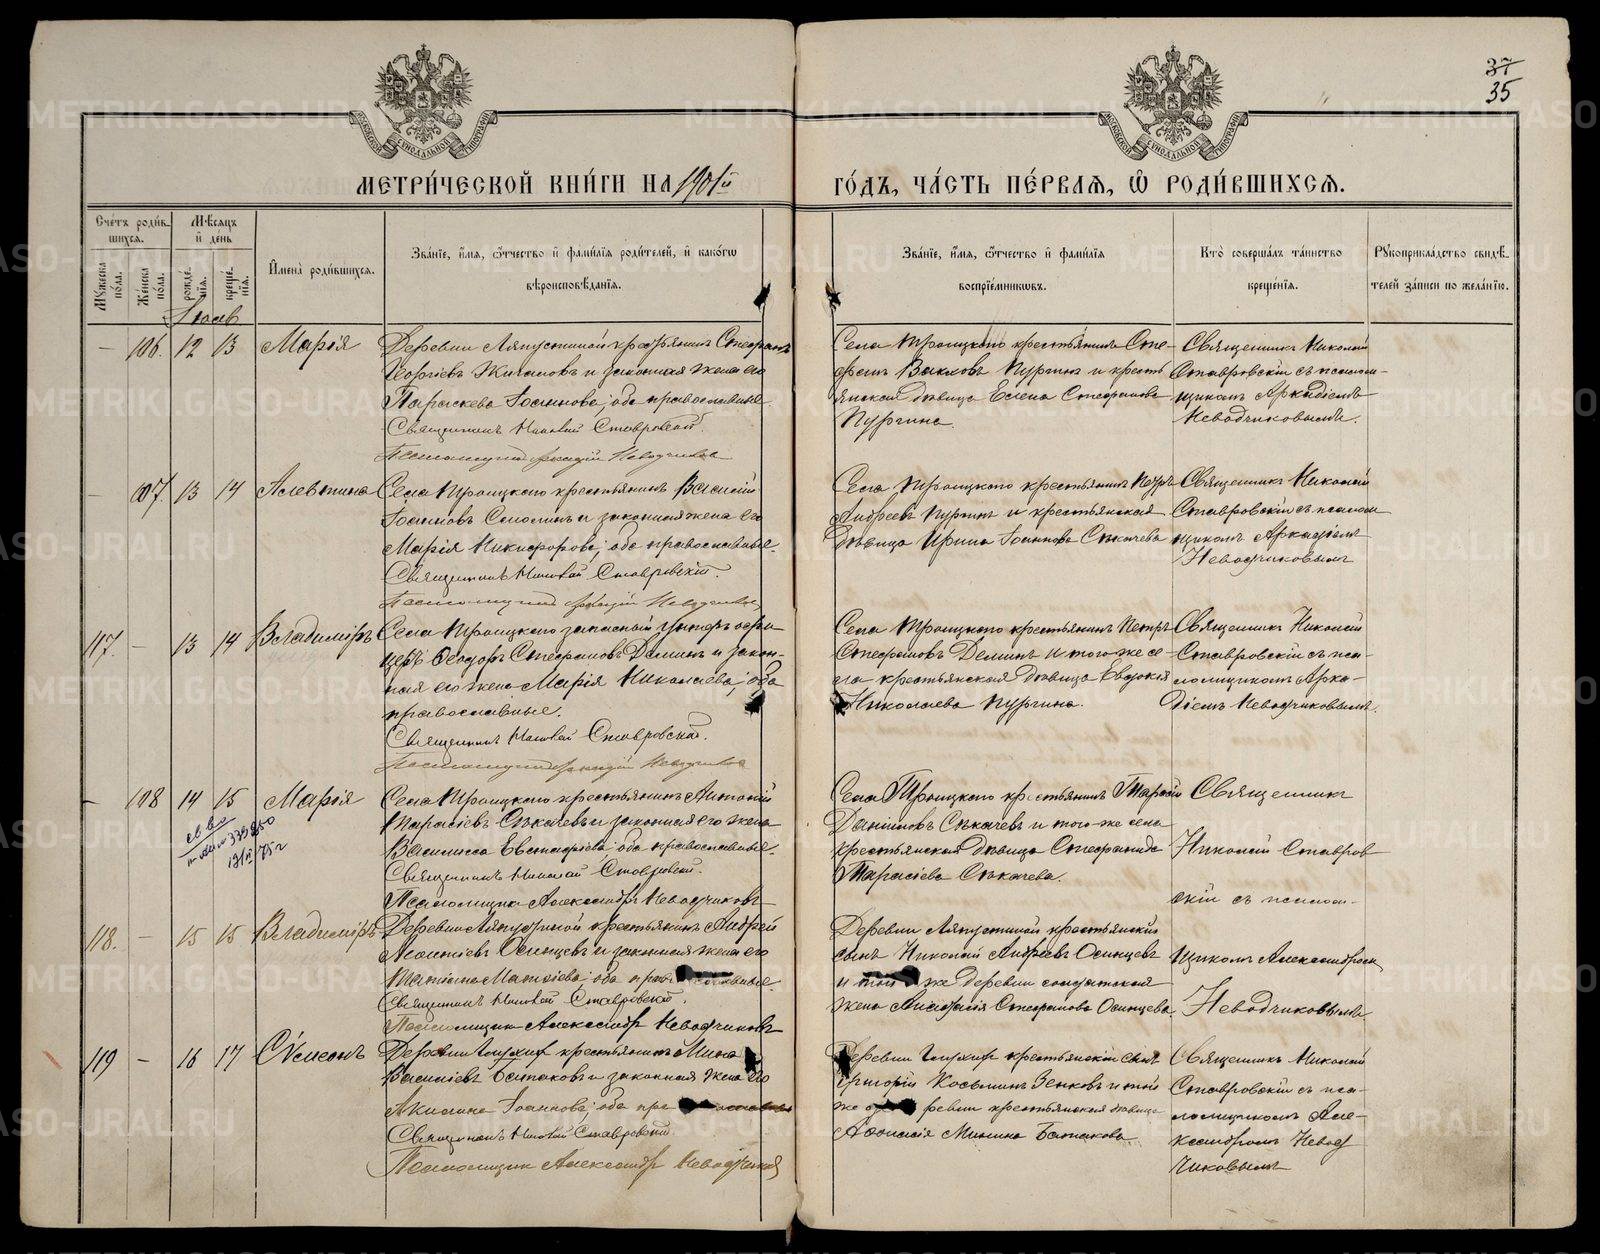 37
35
МЕТРИ́ЧЕСКОЙ КНИ́ГИ НА 1901й ГО́ДЪ, ЧА́СТЬ ПЕ́РВАѦ, Ѡ РОДИ́ВШИХСѦ.
Счетъ роди́вшихсѧ.
Мꙋжеска по́ла.
Же́нска по́ла.
Мѣ́сѧцъ и де́нь
рожде́нїѧ.
креще́нїѧ.
Имена̀ роди́вшихсѧ.
Зва́нїе, и́мѧ, ѻ҆́тчество и фами́лїѧ роди́телей, и како́гѡ
вѣроисповѣ́данїѧ.
Зва́нїе, и́мѧ, ѻ҆́тчество и фами́лїѧ
воспрїе́мникѡвъ.
Кто̀ соверша́лъ та́инство
креще́нїѧ.
Рꙋкоприкла́дство свидѣ́телей за́писи по жела́нїю.
— 106. 12 13 Марія
Деревни Ляпустиной крестьянинъ Стефанъ
Георгіевъ и законная жена его
Параскева Іоаннова, оба православные.
Священникъ Николай Ставровскій.
Псаломщикъ Аркадій Неводчиковъ
Села Троицкаго крестьянинъ Сте-
фанъ Пургинъ и кресть
янская дѣвица Елена Стефанова
Пургина.
Священникъ Николай
Ставровскій съ псалом-
щикомъ Аркадіемъ
Неводчиковымъ.
— 107. 13 14 Алевтина
Села Троицкаго крестьянинъ Василій
Іоанновъ и законная жена его
Марія Никифорова, оба православные.
Священникъ Николай Ставровскій.
Псаломщикъ Аркадій Неводчиковъ
Села Троицкаго крестьянинъ Петръ
Андреевъ Пургинъ и крестьянская
дѣвица Ирина Іоаннова Сѣкачева
Священникъ Николай
Ставровскій съ псалом
щикомъ Аркадіемъ
Неводчиковымъ
117. — 13 14 Владиміръ
Села Троицкаго запасный унтеръ офи-
церъ Ѳеодоръ Стефановъ Деминъ и закон-
ная его жена Марія Николаева, оба
православные.
Священникъ Николай Ставровскій.
Псаломщикъ Аркадій Неводчиковъ
Села Троицкаго крестьянинъ Петръ
Стефановъ Деминъ и того-же се-
ла крестьянская дѣвица Евдокія
Николаева Пургина.
Священникъ Николай
Ставровскій съ пса-
ломщикомъ Арка-
діемъ Неводчиковымъ.
— 108 14 15 Марія
Села Троицкаго крестьянинъ Антоній
Тарасіевъ Сѣкачевъ и законная его жена
Василисса Евстафіева оба православные.
Священникъ Николай Ставровскій.
Псаломщикъ Александръ Неводчиковъ
Села Троицкаго крестьянинъ Тарасій
Даніиловъ Сѣкачевъ и того-же села
крестьянская дѣвица Стефанида
Тарасіева Сѣкачева.
Священникъ
Николай Ставров
скій съ псалом-
щикомъ Александромъ
Неводчиковымъ
118. — 15 15 Владиміръ
Деревни Ляпустиной крестьянинъ Андрей
Леонтіевъ Осинцевъ и законная жена его
Татіана Матѳіева, оба православные.
Священникъ Николай Ставровскій.
Псаломщикъ Александръ Неводчиковъ
Деревни Ляпустиной крестьянскій
сынъ Николай Андреевъ Осинцевъ
и той же деревни солдатская
жена Анастасія Стефанова Осинцева.
119 — 16 17 Сѵмеонъ
Деревни крестьянинъ Мина
Василіевъ Батаковъ и законная жена его
Акилина Іоаннова оба православные
Священникъ Николай Ставровскій.
Псаломщикъ Александръ Неводчиковъ
Деревни крестьянскій сынъ
Григорій Косьминъ Зенковъ и той
же деревни крестьянская дѣвица
Аѳанасія Минина Батакова
Священникъ Николай
Ставровскій съ пса-
ломщикомъ Але-
ксандромъНевод
чиковымъ